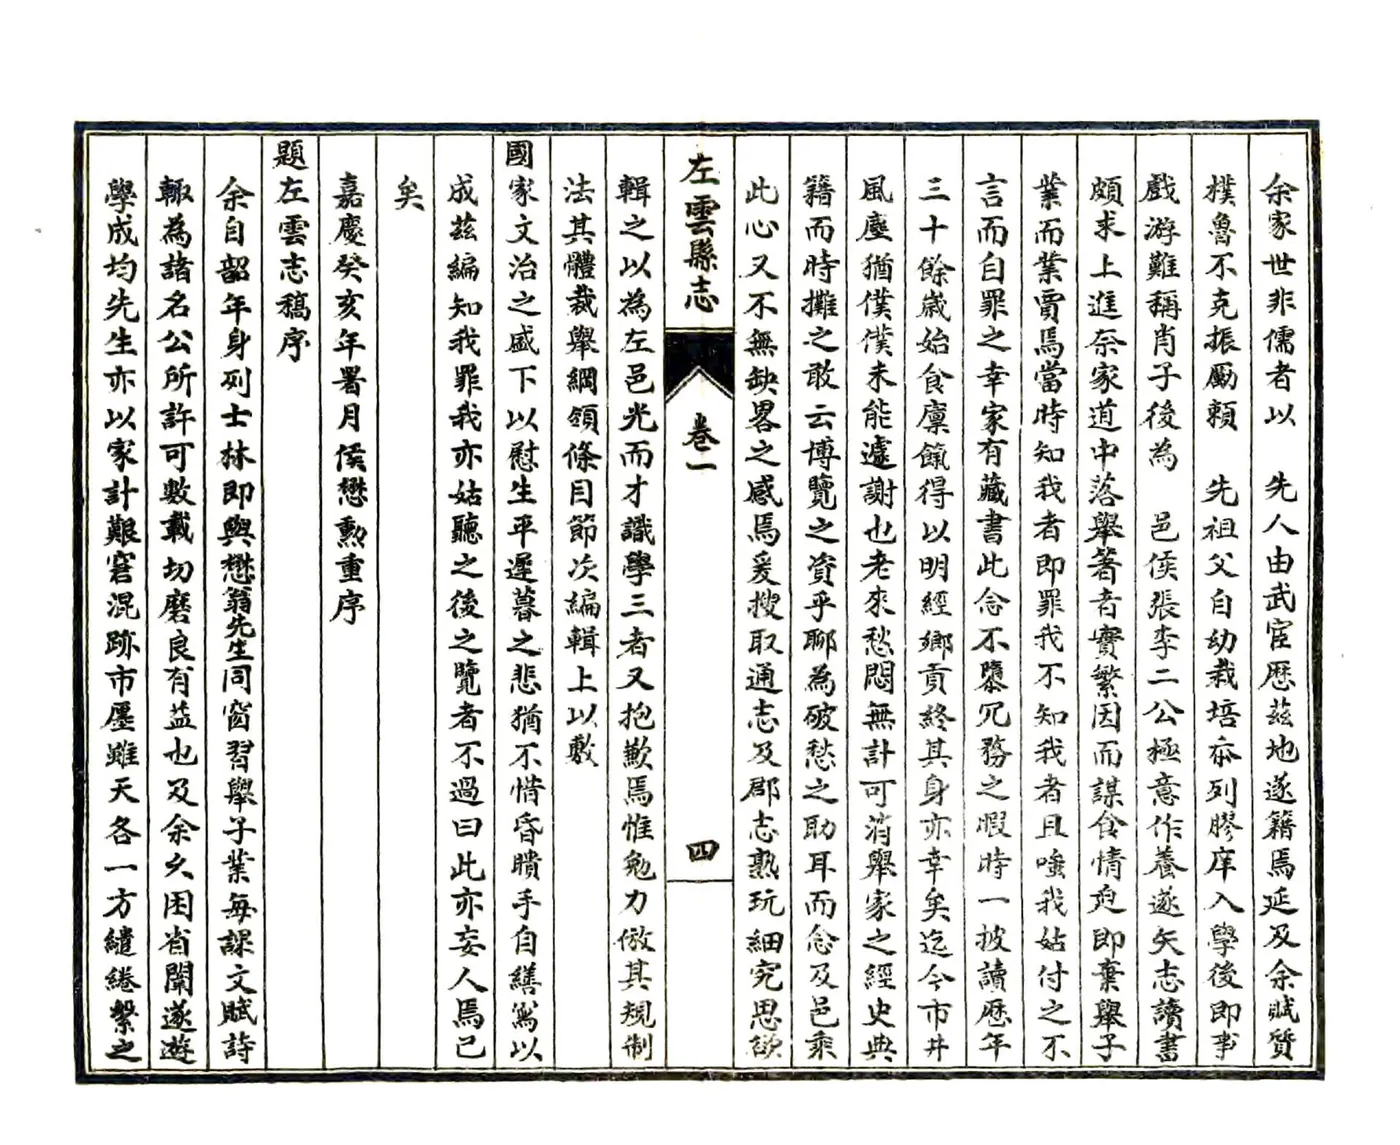 余家世非儒者以　先人由武宦歷茲地遂籍焉延及余賦質
樸魯不克振勵賴　先祖父自幼栽培忝列膠庠入學後即事
戲游難稱肖子後為　邑侯張李二公極意作養遂矢志讀書
頗求上進奈家道中落舉箸者實繁因而謀食情迫即棄舉子
業而業賈焉當時知我者即罪我不知我者且嗤我姑付之不
言而自罪之幸家有藏書此念不隳冗務之暇時一披讀歷年
三十餘歲始食廩餼得以明經鄉貢終其身亦幸矣迄今市井
風塵猶僕僕未能遽謝也老來愁悶無計可消舉家之經史典
籍而時攤之敢云博覽之資乎聊為破愁之助耳而念及邑乘
此心又不無缺畧之感焉爰搜取通志及郡志熟玩細究思欲
左雲縣志
卷一
四
輯之以為左邑光而才識學三者又抱歉焉惟勉力倣其規制
法其體裁舉綱領條目節次編輯上以敷
國家文治之盛下以慰生平遲暮之悲猶不惜昏瞶手自繕寫以
成茲編知我罪我亦姑聽之後之覽者不過曰此亦妄人焉已
矣
嘉慶癸亥年署月侯懋勳重序
題左雲志稿序
余自韶年身列士林即與懋翁先生同窗習舉子業每課文賦詩
輙為諸名公所許可數載切磨良有益也及余久困省闈遂遊
學成均先生亦以家計艱窘混跡市廛雖天各一方繾綣繫之